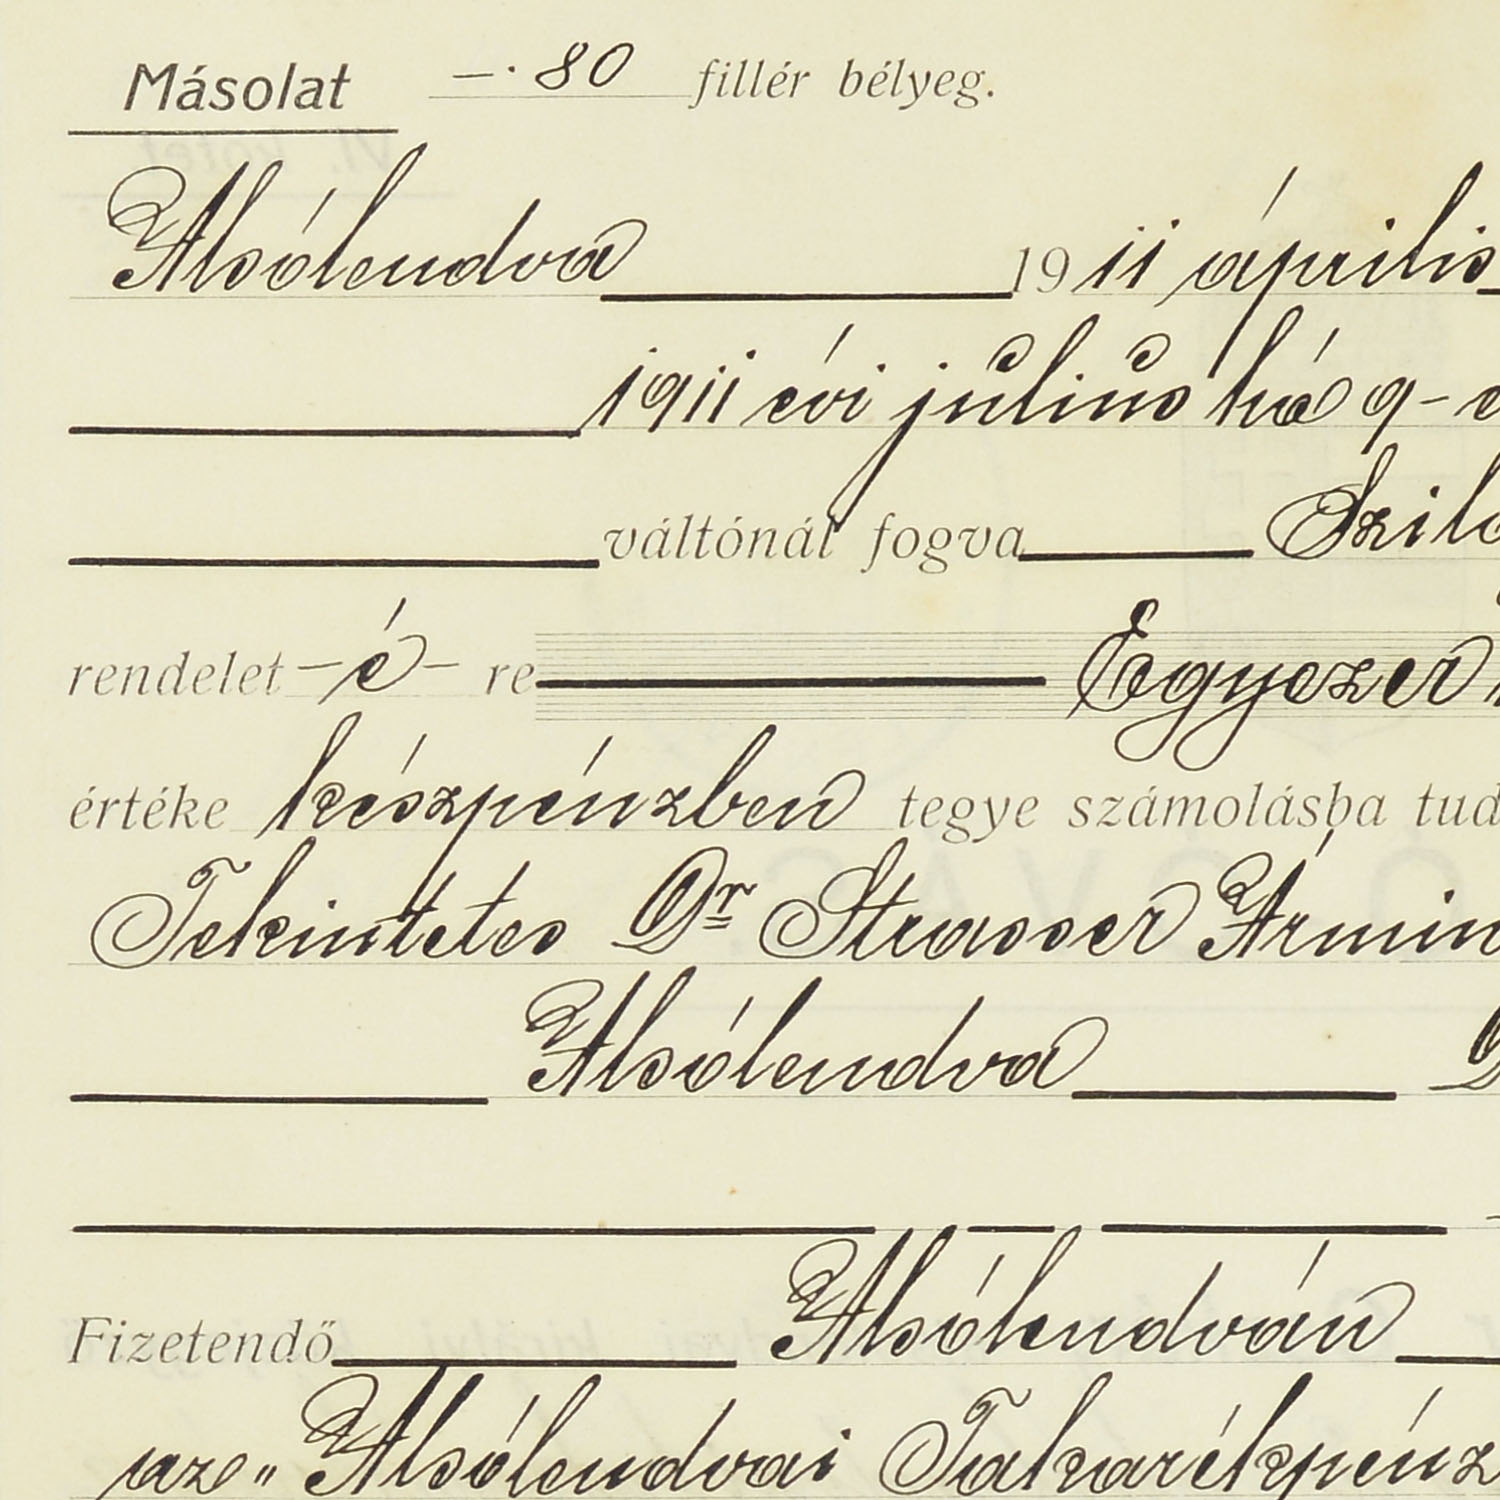 Másolat —·80 fillér bélyeg.
Alsólendva 1911 április
1911 évi július hó 9-
váltónál fogva
rendelet -é- re Egyezer
értéke készpénzben tegye számolásba tud
Tekintetes Dr Strasser Ármin
Alsólendva
Fizetendő Alsólendván
az „Alsólendvai Takarékpénz